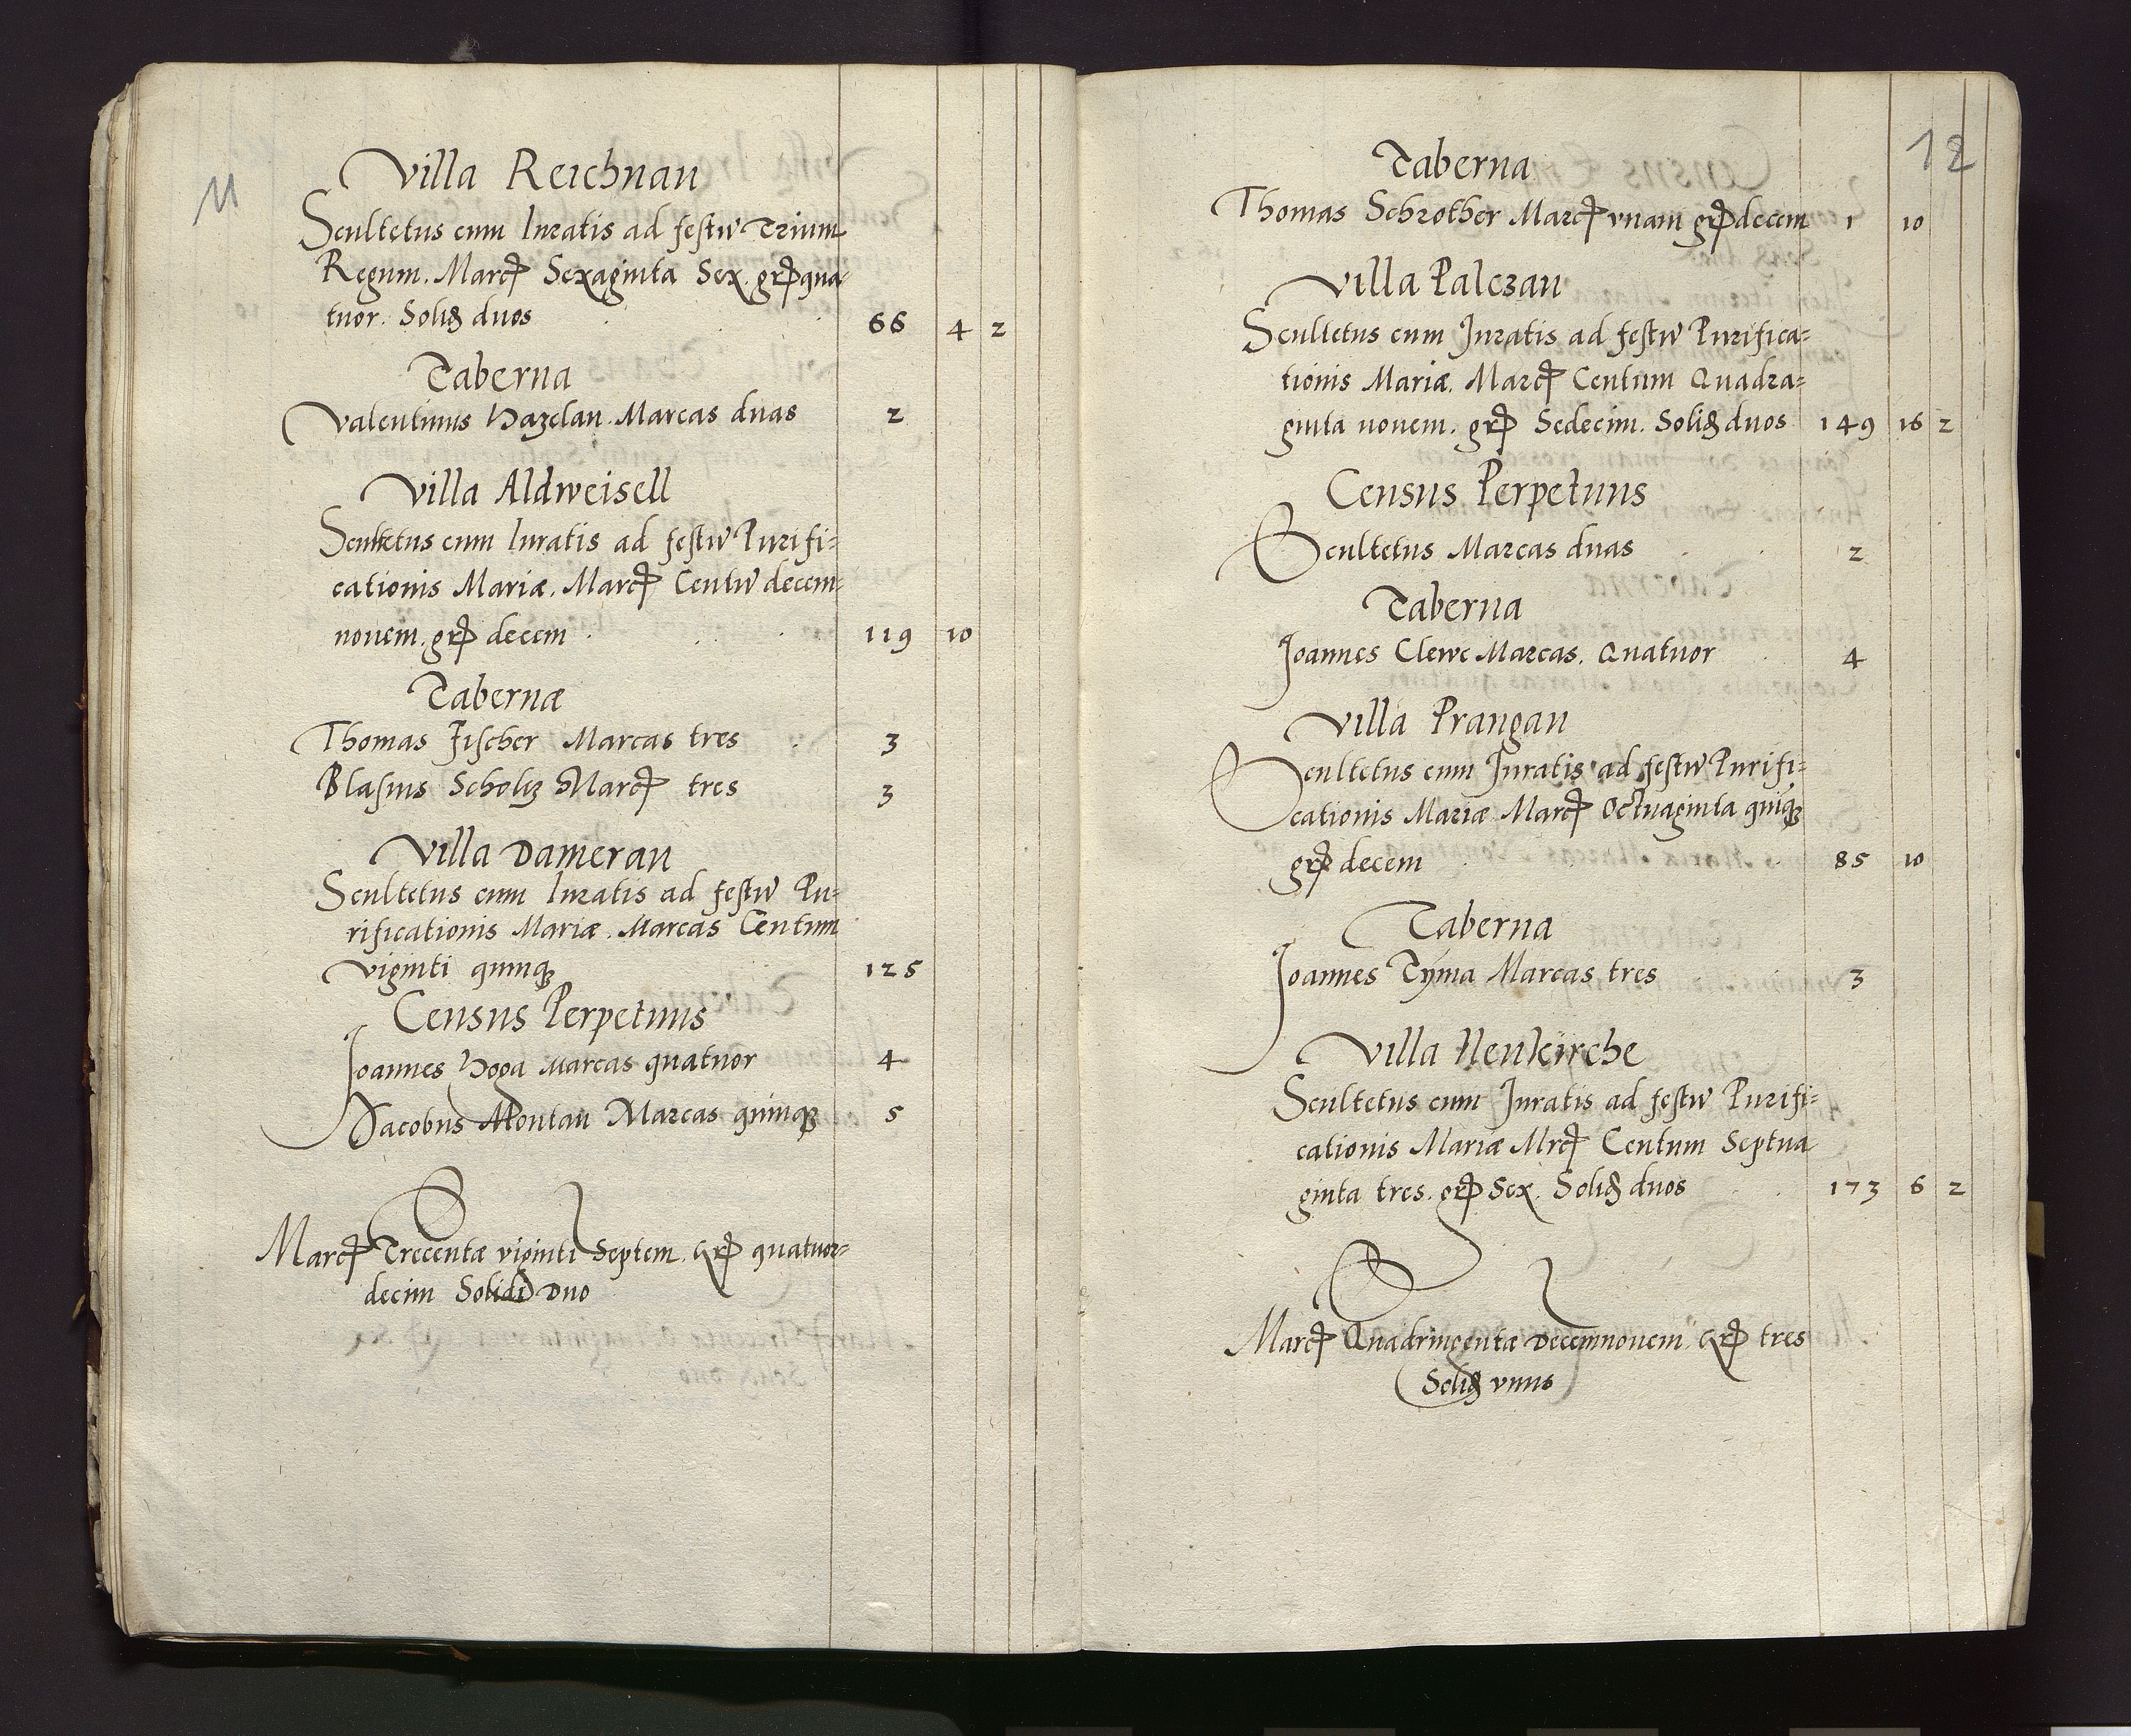 11
Villa Reichnau
Scultetus cum Iuratis ad festu Trium
Regum. Marc Sexaginta Sex. gr qua-
tuor. Solid duos 66 4 2
Taberna
Valentinus Hazelau Marcas duas 2
Villa Aldweisell
Scultetus cum Iuratis ad festu Purifi=
cationis Mariæ. Marc Centu decem=
novem. gr decem 119 10
Tabernæ
Thomas Fischer Marcas tres 3
Blasius Scholtz Marc tres 3
Villa Damerau
Scultetus cum Iuratis ad festu Pu=
rificationis Mariæ. Marcas Centum
Viginti quinq 125
Census Perpetuus
Joannes Hoga Marcas quatuor 4
Jacobus Montau Marcas quinq 5
Marc Trecentæ viginti Septem. Gr quatuor=
decim Solidi Duo
12
Taberna
Thomas Schrother Marc vnam gr decem 1 10
Villa Palczau
Scultetus cum Juratis ad festu Purifica=
tionis Mariæ. Marc Centum Quadra=
ginta novem. gr Sedecim. Solid duos 149 16 2
Census Perpetuus
Scultetus Marcas duas 2
Taberna
Joannes Clewe Marcas. Quatuor 4
Villa Prangau
Scultetus cum Juratis ad festu Purifi=
cationis Mariæ Marc Octuaginta quiq
gr decem 85 10
Taberna
Joannes Tÿma Marcas tres 3
Villa Neukirche
Scultetus cum Juratis ad festu Purifi=
cationis Mariæ Mrc Centum Septua
ginta tres. gr Sex. Solid duos 173 6 2
Marc Quadringentæ Decemnovem Gr tres
Solid vnus